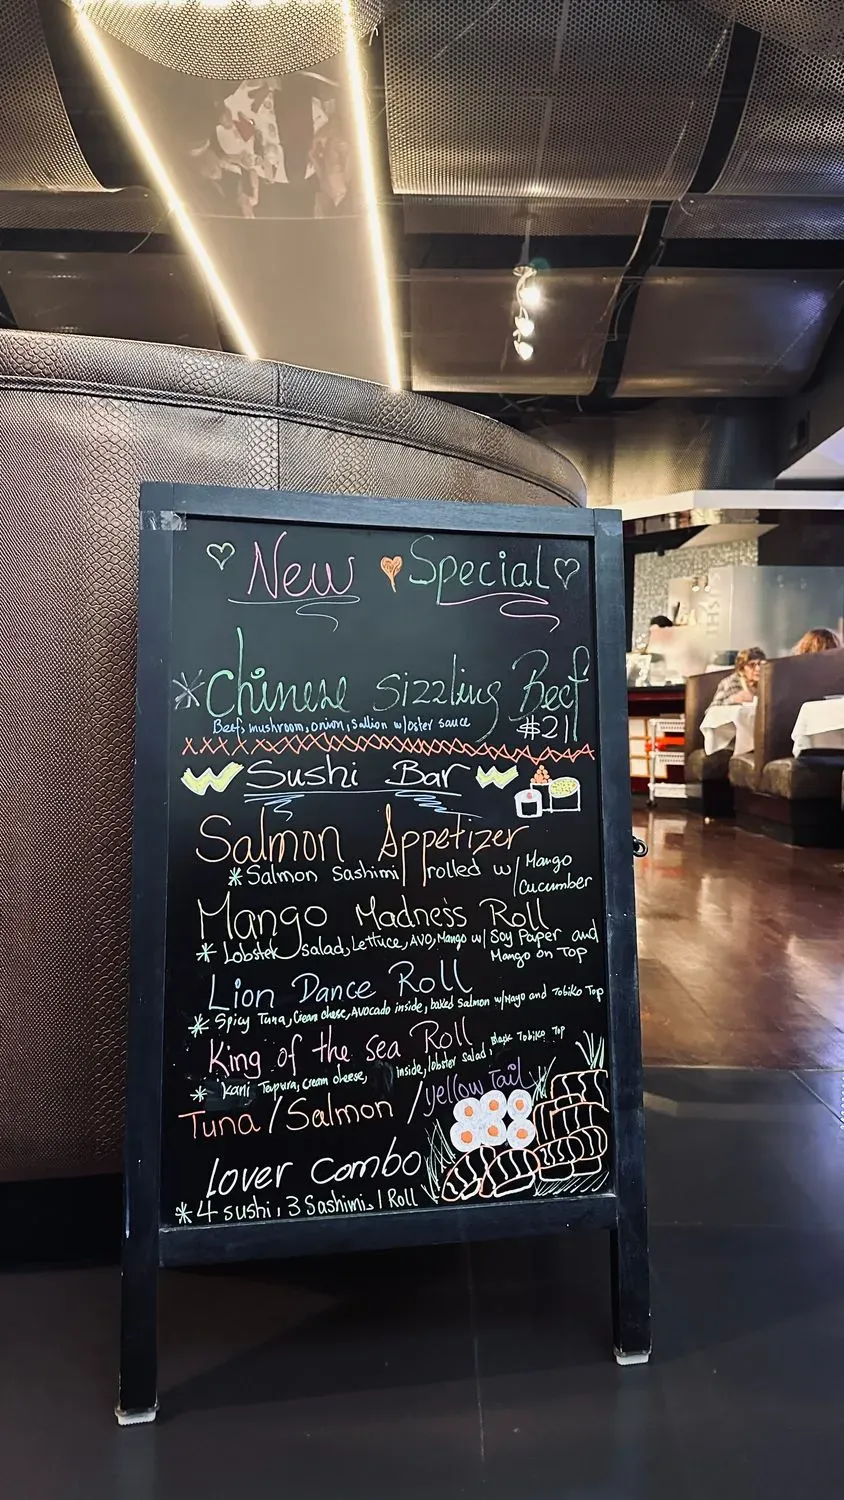 New Special
Chinese Sizzling Beef
Beef, mushroom, onion, Sallion w/oster sauce
$21
Sushi Bar
Salmon Appetizer
*Salmon Sashimi rolled w/ Mango
Cucumber
Mango Madness Roll
* Lobster Salad, Lettuce, AVO, Mango w/ Soy Paper and
Mango on Top
Lion Dance Roll
* Spicy Tuna, Cream chese, Avocado inside, baked Salmon w/Mayo and Tobiko Top
King of the sea Roll
* Kani Tenpura, cream cheese, inside, lobster salad, Black Tobiko Top
Tuna/Salmon/Yellow Tail
Lover Combo
*4 sushi, 3 Sashimi, 1 Roll